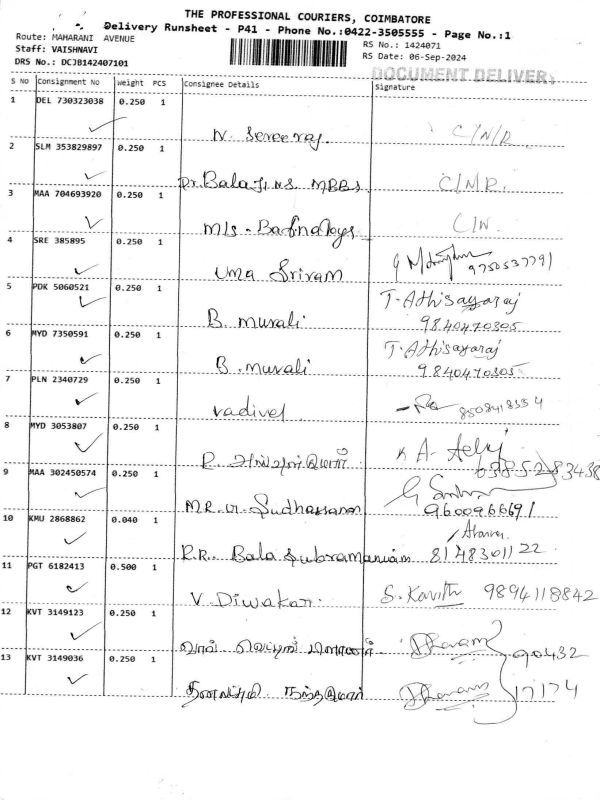 THE PROFESSIONAL COURIERS, COIMBATORE
Delivery Runsheet - P41 - Phone No.:0422-3505555 - Page No.:1
Route: MAHARANI AVENUE
RS No.: 1424071
Staff: VAISHNAVI
RS Date: 06-Sep-2024
DRS No.: DCJB142407101
DOCUMENT DELIVER
S No Consignment No Weight PCS Consignee Details Signature
1 DEL 730323038 0.250 1
C/N/R
2 SLM 353829897 0.250 1
Dr. Balaji NS MBBS C/N/R.
3 MAA 704693920 0.250 1
M/s - C/N
4 SRE 385895 0.250 1
Uma Sriram 9750537791
5 PDK 5060521 0.250 1
B. Murali T. Athisayaraj
9840470305
6 MYD 7350591 0.250 1
B. Murali T. Athisayaraj
9840470305
7 PLN 2340729 0.250 1
Vadivel 8508418554
8 MYD 3053807 0.250 1
9 MAA 302450574 0.250 1
9600966691
10 KMU 2868862 0.040 1
Bala Subramaniam 8148301122
11 PGT 6182413 0.500 1
V. Diwakar. S. Kavith 9894118842
12 KVT 3149123 0.250 1
90432
13 KVT 3149036 0.250 1
17174